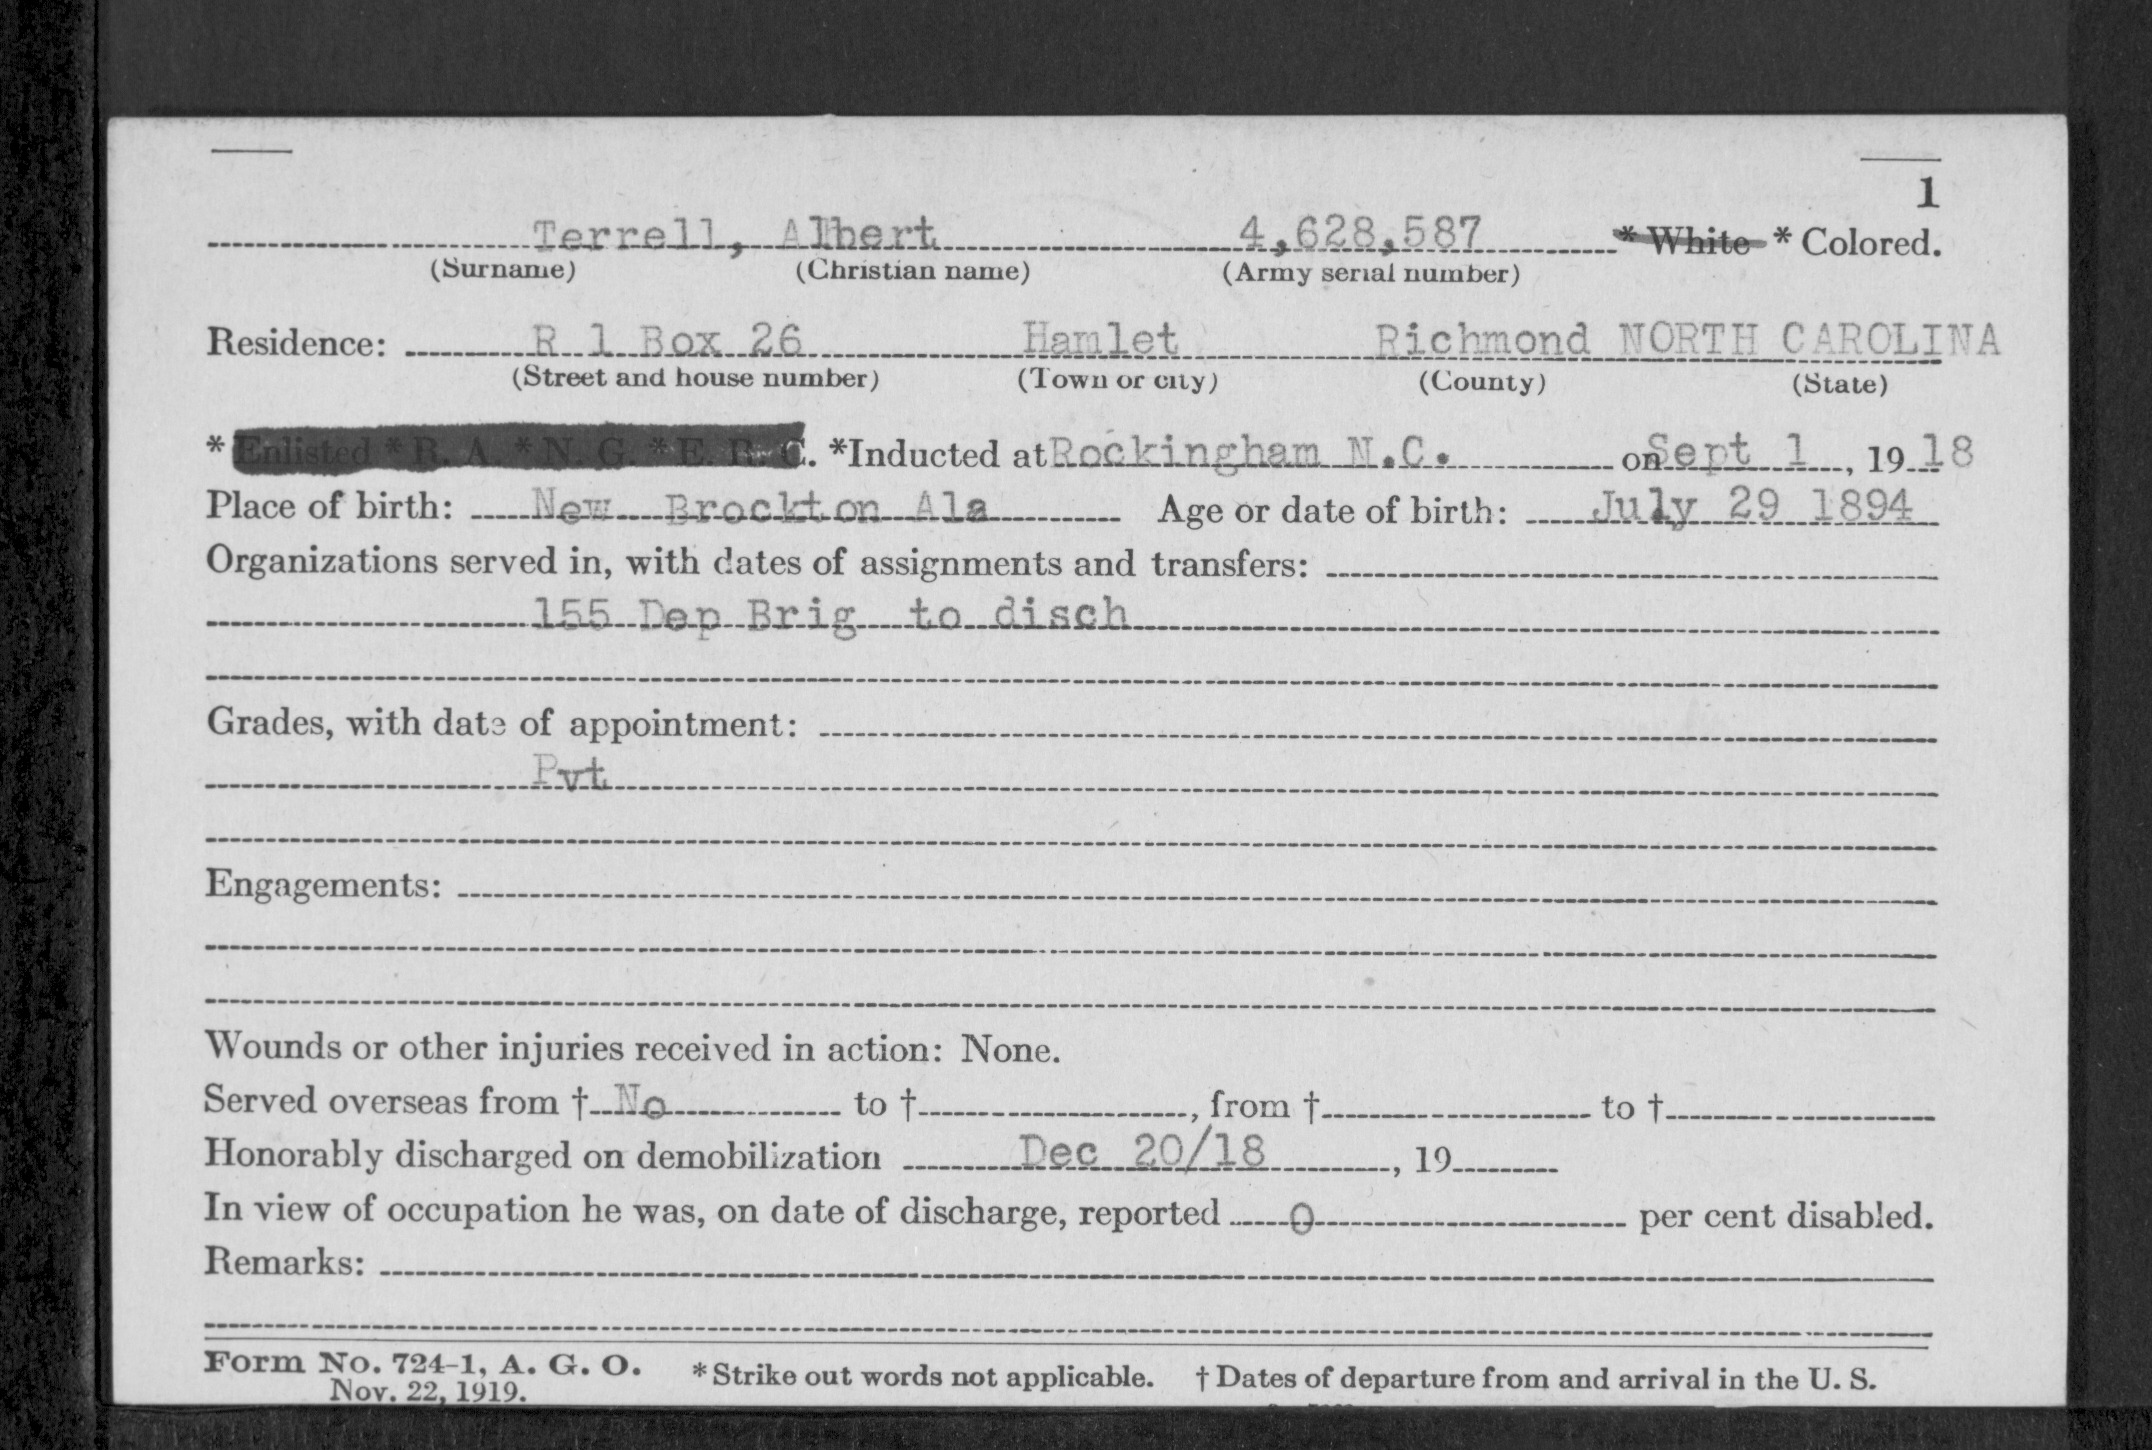 1
Terrell, Albert 4,628,587 * White * Colored.
(Surname) (Christian name) (Army serial number)
Residence: R 1 Box 26 Hamlet Richmond NORTH CAROLINA
(Street and house number) (Town or city) (County) (State)
* Enlisted * R. A. * N. G. * E. R. C. *Inducted at Rockingham N.C. on Sept 1, 19 18
Place of birth: New Brockton Ala Age or date of birth: July 29 1894
Organizations served in, with dates of assignments and transfers:
155 Dep Brig to disch
Grades, with date of appointment:
Pvt
Engagements:
Wounds or other injuries received in action: None.
Served overseas from † No to †, from † to †
Honorably discharged on demobilization Dec 20/18, 19
In view of occupation he was, on date of discharge, reported 0 per cent disabled.
Remarks:
Form No. 724-1, A. G. O. * Strike out words not applicable. † Dates of departure from and arrival in the U. S.
Nov. 22, 1919.